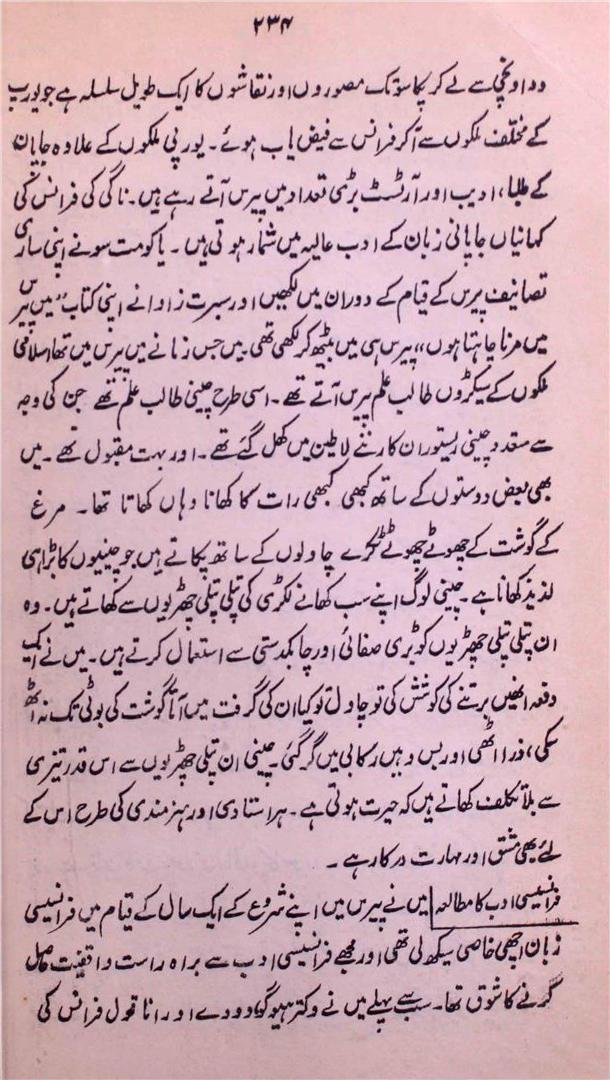 ۲۳۴
ودا ونچی سے لے کر پکاسو تک مصوروں اور نقاشوں کا ایک طویل سلسلہ ہے جو یورپ
کے مختلف ملکوں سے آکر فرانس سے فیض یاب ہوئے۔ یورپی ملکوں کے علاوہ جاپان
کے طلبا، ادیب اور آرٹسٹ بڑی تعداد میں پیرس آتے رہے ہیں۔ ناگی کی فرانس کی
کہانیاں جاپانی زبان کے ادب عالیہ میں شمار ہوتی ہیں۔ یاکومت سونے اپنی ساری
تصانیف پیرس کے قیام کے دوران میں لکھیں اور سبرت زاوانے اپنی کتاب ”میں پیرس
میں مرنا چاہتا ہوں“ پیرس ہی میں بیٹھ کر لکھی تھی۔ میں جس زمانے میں پیرس میں تھا اسلامی
ملکوں کے سیکڑوں طالب علم پیرس آتے تھے۔ اسی طرح چینی طالب علم تھے جن کی وجہ
سے متعدد چینی ریستوران کارتئے لاطین میں کھل گئے تھے۔ اور بہت مقبول تھے۔ میں
بھی بعض دوستوں کے ساتھ کبھی کبھی رات کا کھانا وہاں کھاتا تھا۔ مرغ
کے گوشت کے چھوٹے چھوٹے ٹکڑے چاولوں کے ساتھ پکاتے ہیں جو چینیوں کا بڑا ہی
لذیذ کھانا ہے۔ چینی لوگ اپنے سب کھانے لکڑی کی پتلی پتلی چھڑیوں سے کھاتے ہیں۔ وہ
ان پتلی پتلی چھڑیوں کو بڑی صفائی اور چابکدستی سے استعمال کرتے ہیں۔ میں نے ایک
دفعہ انھیں برتنے کی کوشش کی تو چاول تو کیا ان کی گرفت میں آتا گوشت کی بوٹی تک نہ اٹھ
سکی، ذرا اٹھی اور بس وہیں رکابی میں گر گئی۔ چینی ان پتلی چھڑیوں سے اس قدر تیزی
سے بلا تکلف کھاتے ہیں کہ حیرت ہوتی ہے۔ ہر استادی اور ہنر مندی کی طرح اس کے
لئے بھی مشق اور مہارت درکار ہے۔
فرانسیسی ادب کا مطالعہ میں نے پیرس میں اپنے شروع کے ایک سال کے قیام میں فرانسیسی
زبان اچھی خاصی سیکھ لی تھی اور مجھے فرانسیسی ادب سے براہ راست واقفیت حاصل
کرنے کا شوق تھا۔ سب سے پہلے میں نے وکتر ہیوگو دودے اور اناتول فرانس کی